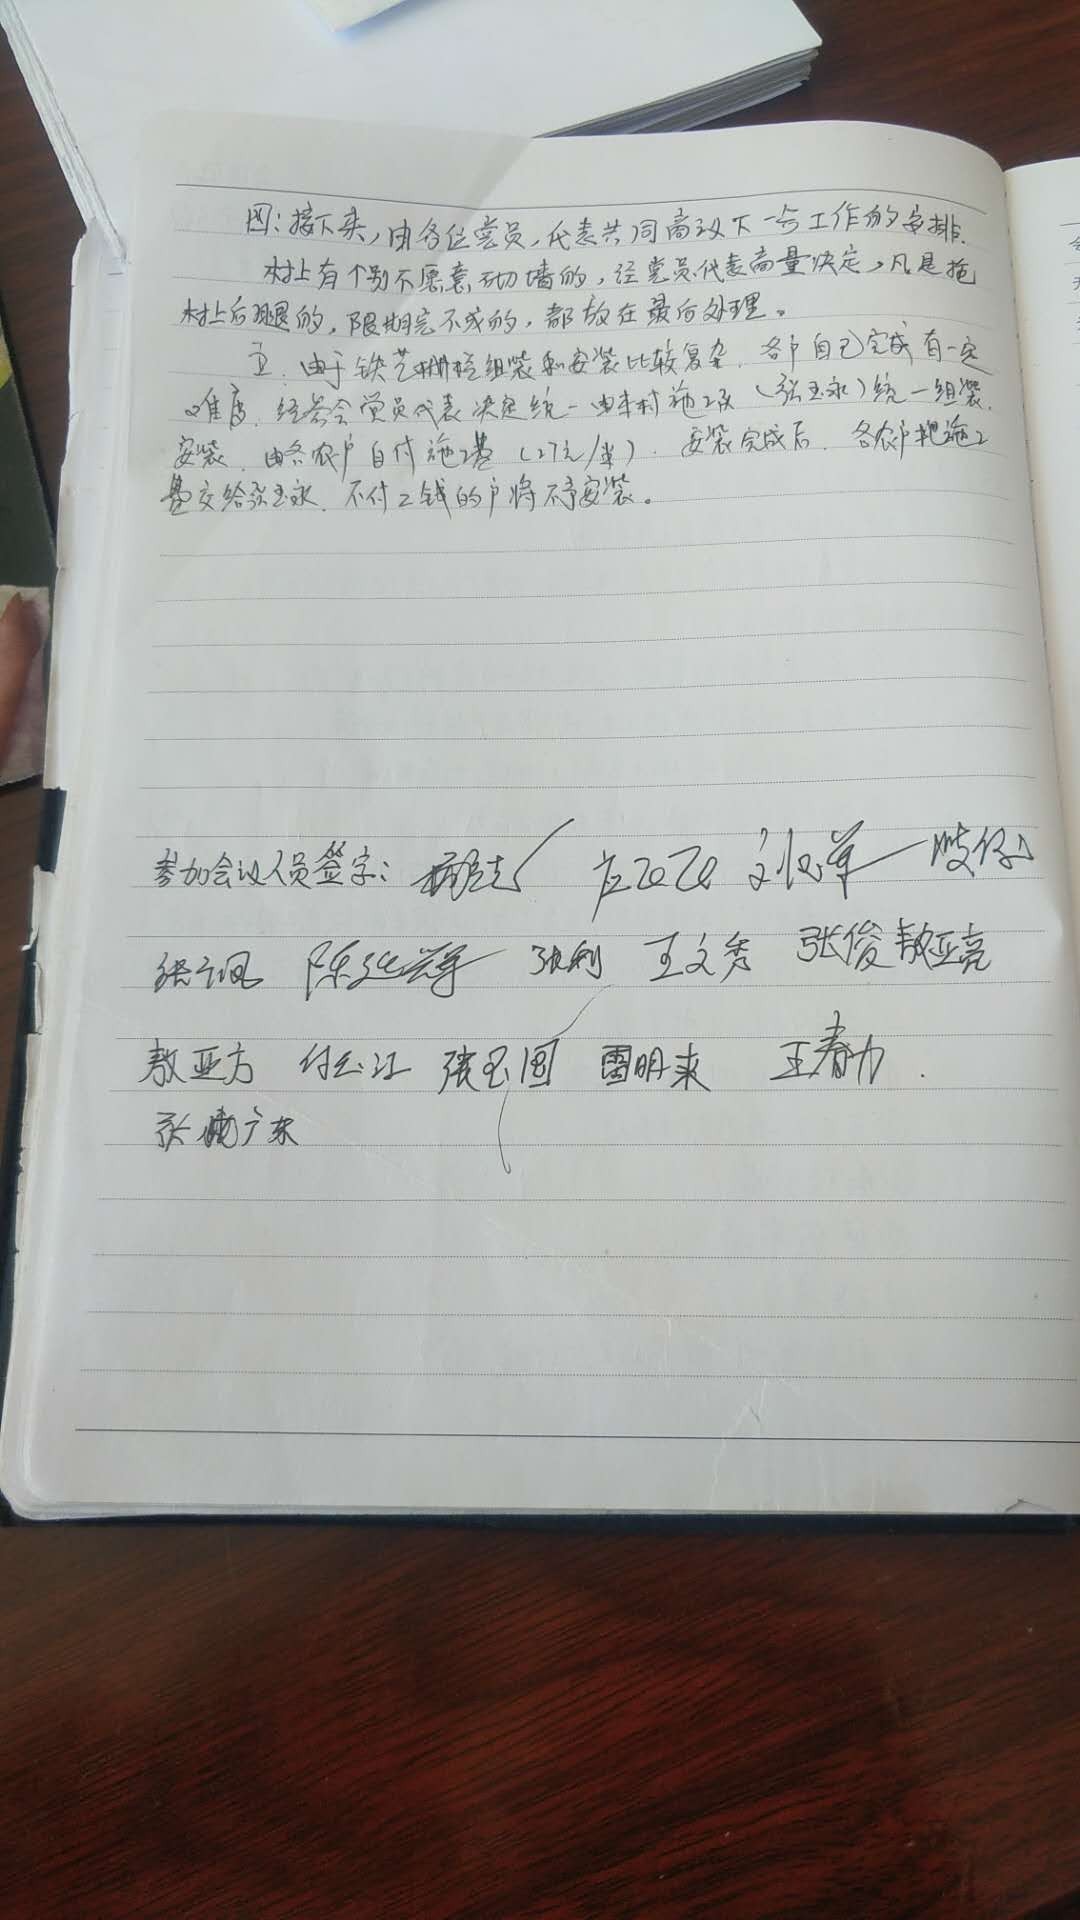 四:接下来,由各位党员,代表共同商议下一步工作的安排.
村上有个别不愿意砌墙的,经党员代表商量决定,凡是拖
村上后腿的,限期完不成的,都放在最后处理。
五.由于铁艺栅栏组装和安装比较复杂.各户自己完成有一定
难度.经参会党员代表决定统一由本村施工队(张玉永)统一组装.
安装.由各农户自付施工费(27元/米).安装完成后.各农户把施工
费交给张玉永.不付工钱的户将不予安装。
参加会议人员签字:
张利 王文秀 张俊 敖亚亮
敖亚方 张玉国 雷明来 王春力
张广东